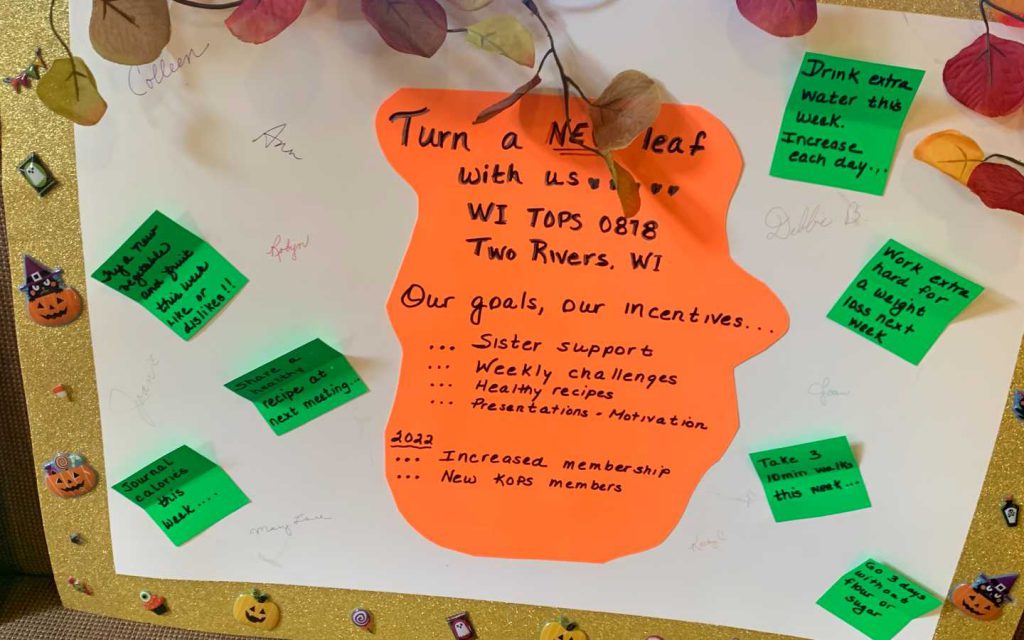 Colleen
Ann
Robyn
Try a new
vegetable
and fruit
this week
Like or
dislikes!!
Share a
healthy
recipe at
next meeting...
Journal
calories
this
week....
Mary Lane
Turn a NEW leaf
with us
WI TOPS 0878
Two Rivers, WI
Our goals, our incentives...
... Sister support
... Weekly challenges
... Healthy recipes
... Presentations - Motivation
2022
... Increased membership
... New KOPS members
Drink extra
water this
week.
Increase
each day...
Debbe B.
Work extra
hard for
a weight
loss next
week
Joan
Take 3
10 min walks
this week...
Kathy C
Go 3 days
without
flour or
sugar